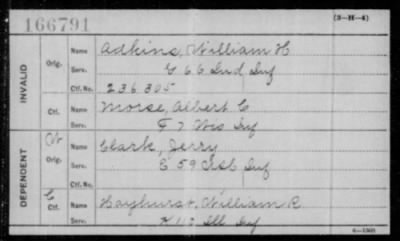 166791
(3-H-4)
INVALID
Orig.
Name Adkins, William H
Serv. G 66 Ind Inf
Ctf. No. 236305
Ctf.
Name Morse, Albert C
Serv. F 7 Wis Inf
DEPENDENT
W
Orig.
Name Clark, Jerry
Serv. E 59 Inf
Ctf. No.
C
Ctf.
Name Hayhurst, William R
Serv. Ill Inf